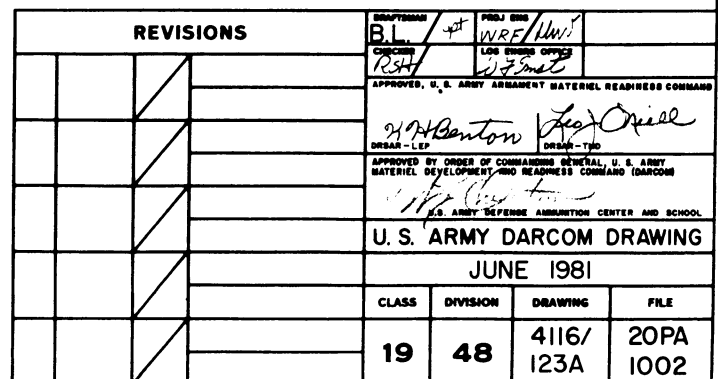 REVISIONS
DRAFTSMAN
B.L.
PROJ ENG
WRF/
CHECKER
RSH
LOG ENGRS OFFICE
APPROVED, U. S. ARMY ARMAMENT MATERIEL READINESS COMMAND
Benton
DRSAR-LEP
DRSAR-TMD
APPROVED BY ORDER OF COMMANDING GENERAL, U. S. ARMY
MATERIEL DEVELOPMENT AND READINESS COMMAND (DARCOM)
U.S. ARMY DEFENSE AMMUNITION CENTER AND SCHOOL
U. S. ARMY DARCOM DRAWING
JUNE 1981
CLASS DIVISION DRAWING FILE
19 48 4116/ 20PA
123A 1002